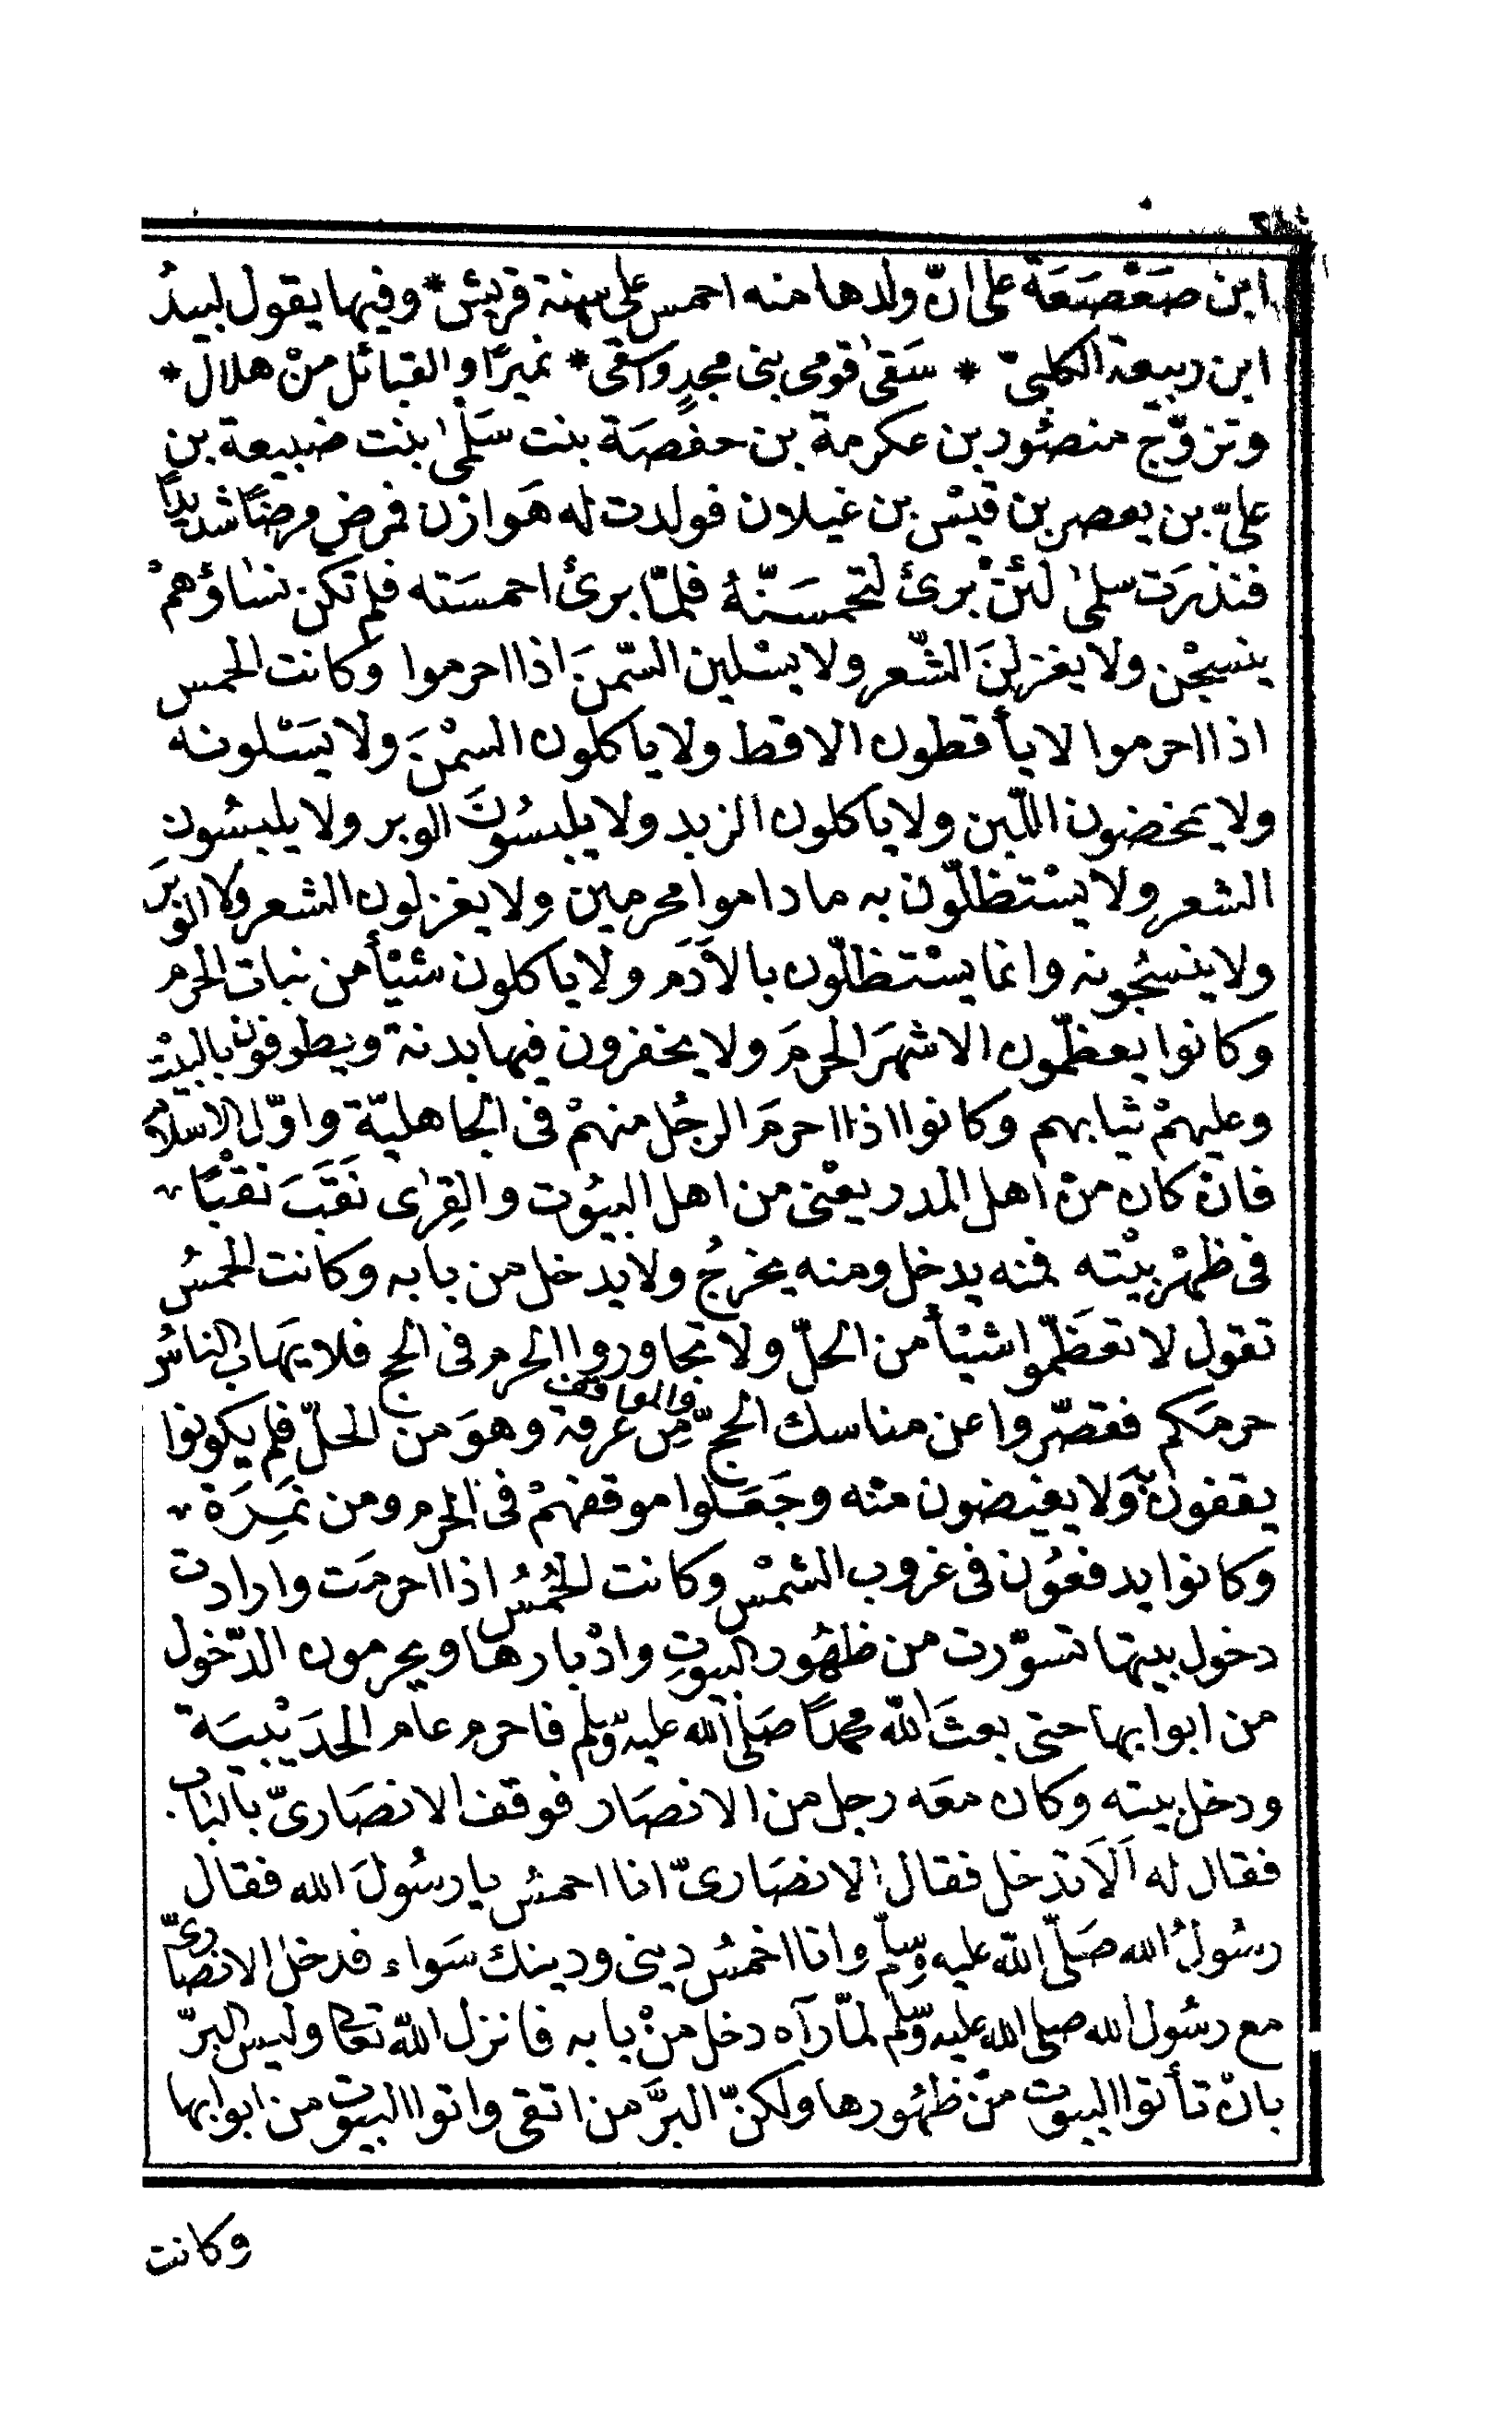 ابن صَعْصَعَة على انّ ولدها منه احمس على سنة قريش * وفيها يقول لبيدُ
ابن ربيعة الكلبىّ * سَقىٰ قومى بنى مجدٍ واسقى * نميرًا والقبائل منْ هلال *
وتزوّج منصُور بن عكرمة بن حفصَة بنت سَلمىٰ بنت ضبيعة بن
علىّ بن يعصر بن قيْس بن غيلان فولدت له هَوازن فمرض مرضًا شديدًا
فنذرَت سلمىٰ لئنْ برئ لتحمسَنّهُ فلمّا برئ احمسَته فلم تكن نسٰاؤهمْ
ينسجْن ولا يغزلنَ الشّعر ولا يسْلين السّمنَ اذا احرموا وكانت الحمس
اذا احرموا لا يأقطون الاقط ولا ياكلون السمْنَ ولا يسَْلونه
ولا يمخضون اللّبن ولا ياكلون الزبد ولا يلبسُونَ الوبر ولا يلبسُون
الشعر ولا يسْتظلّون به ما داموا محرمين ولا يغزلون الشعر ولا الوبرَ
ولا ينسجُونه وانما يسْتظلّون بالاَدَم ولا ياكلون شيْأ من نبات الحرم
وكانوا يعظّمون الاشهَر الحرمَ ولا يخفرون فيها بدنة ويطوفون بالبيْت
وعليهمْ ثيابهم وكانوا اذا احرمَ الرجُل منهمْ فى الجاهليّة واوّل الاسلام
فانْ كان منْ اهل المدر يعْنى من اهل البيُوت والقِرٰى نَقَبَ نقْبًا
فى ظهْر بيْته فمنه يدخل ومنه يخرجُ ولا يدخل من بابه وكانت الحمسُ
تقول لا تعَظّموا شيْأ من الحلّ ولا تجاوروا الحرم فى الحج فلا يهَاب الناسُ
حرمَكم فقصّروا عن مناسك الحجّ والمواقف مِن عرفة وهوَ من الحلّ فلم يكونوا
يقفون به ولا يفيضون منْه وجَعَلوا موقفهمْ فى الحرم ومن نمِرَة
وكانوا يدفعُون فى غروب الشمْس وكانت الحُمُسُ اذا احرمَت وارادت
دخول بيتها تسوّرت من ظهُور البيوتِ وادْبارها ويحرمون الدّخول
من ابوابها حتى بعثَ اللّه محمدًا صَلى اللّه عليه وسلم فاحرم عام الحدَيْبيَة
ودخل بيته وكان معَه رجل من الانصَار فوقف الانصَارىّ بالباب
فقال له اَلاَ تدخل فقال الانصَارىّ انا احمسُ يا رسُولَ الله فقال
رسُولُ الله صَلّى اللّه عليه وسلّم وانا احْمسُ دينى ودينك سَواء فدخل الانصَارىّ
مع رسُول الله صلى الله عليه وسّلم لمّا رآه دخل منْ بابه فانزل اللّه تعَالى وليس البرّ
بانْ تأتوا البيوت منْ ظهُورها ولكنّ البرَّ من اتقى واتوا البيوت من ابوابها
وكانت